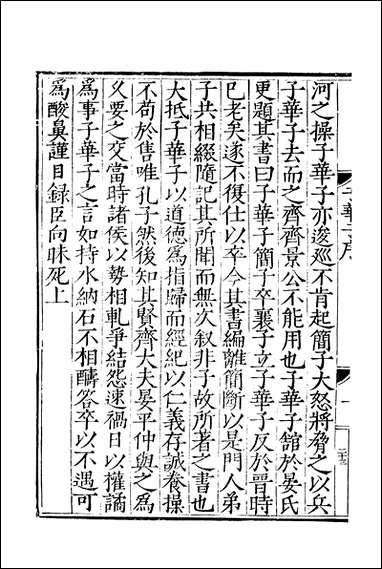 河之操子華子亦逡廵不肯起簡子大怒將脅之以兵
子華子去而之齊齊景公不能用也子華子舘於晏氏
更題其書曰子華子簡子卒襄子立子華子反於晉時
已老矣遂不復仕以卒今其書編離簡斷以是門人弟
子共相綴隨記其所聞而無次叙非子故所著之書也
大抵子華子以道德為指歸而經紀以仁義存誠養操
不苟於售唯孔子然後知其賢齊大夫晏平仲與之為
久要之交當時諸侯以勢相軋爭結怨速禍日以權譎
為事子華子之言如持水納石不相醻答卒以不遇可
為酸鼻謹目録臣向昧死上
子華子序
一